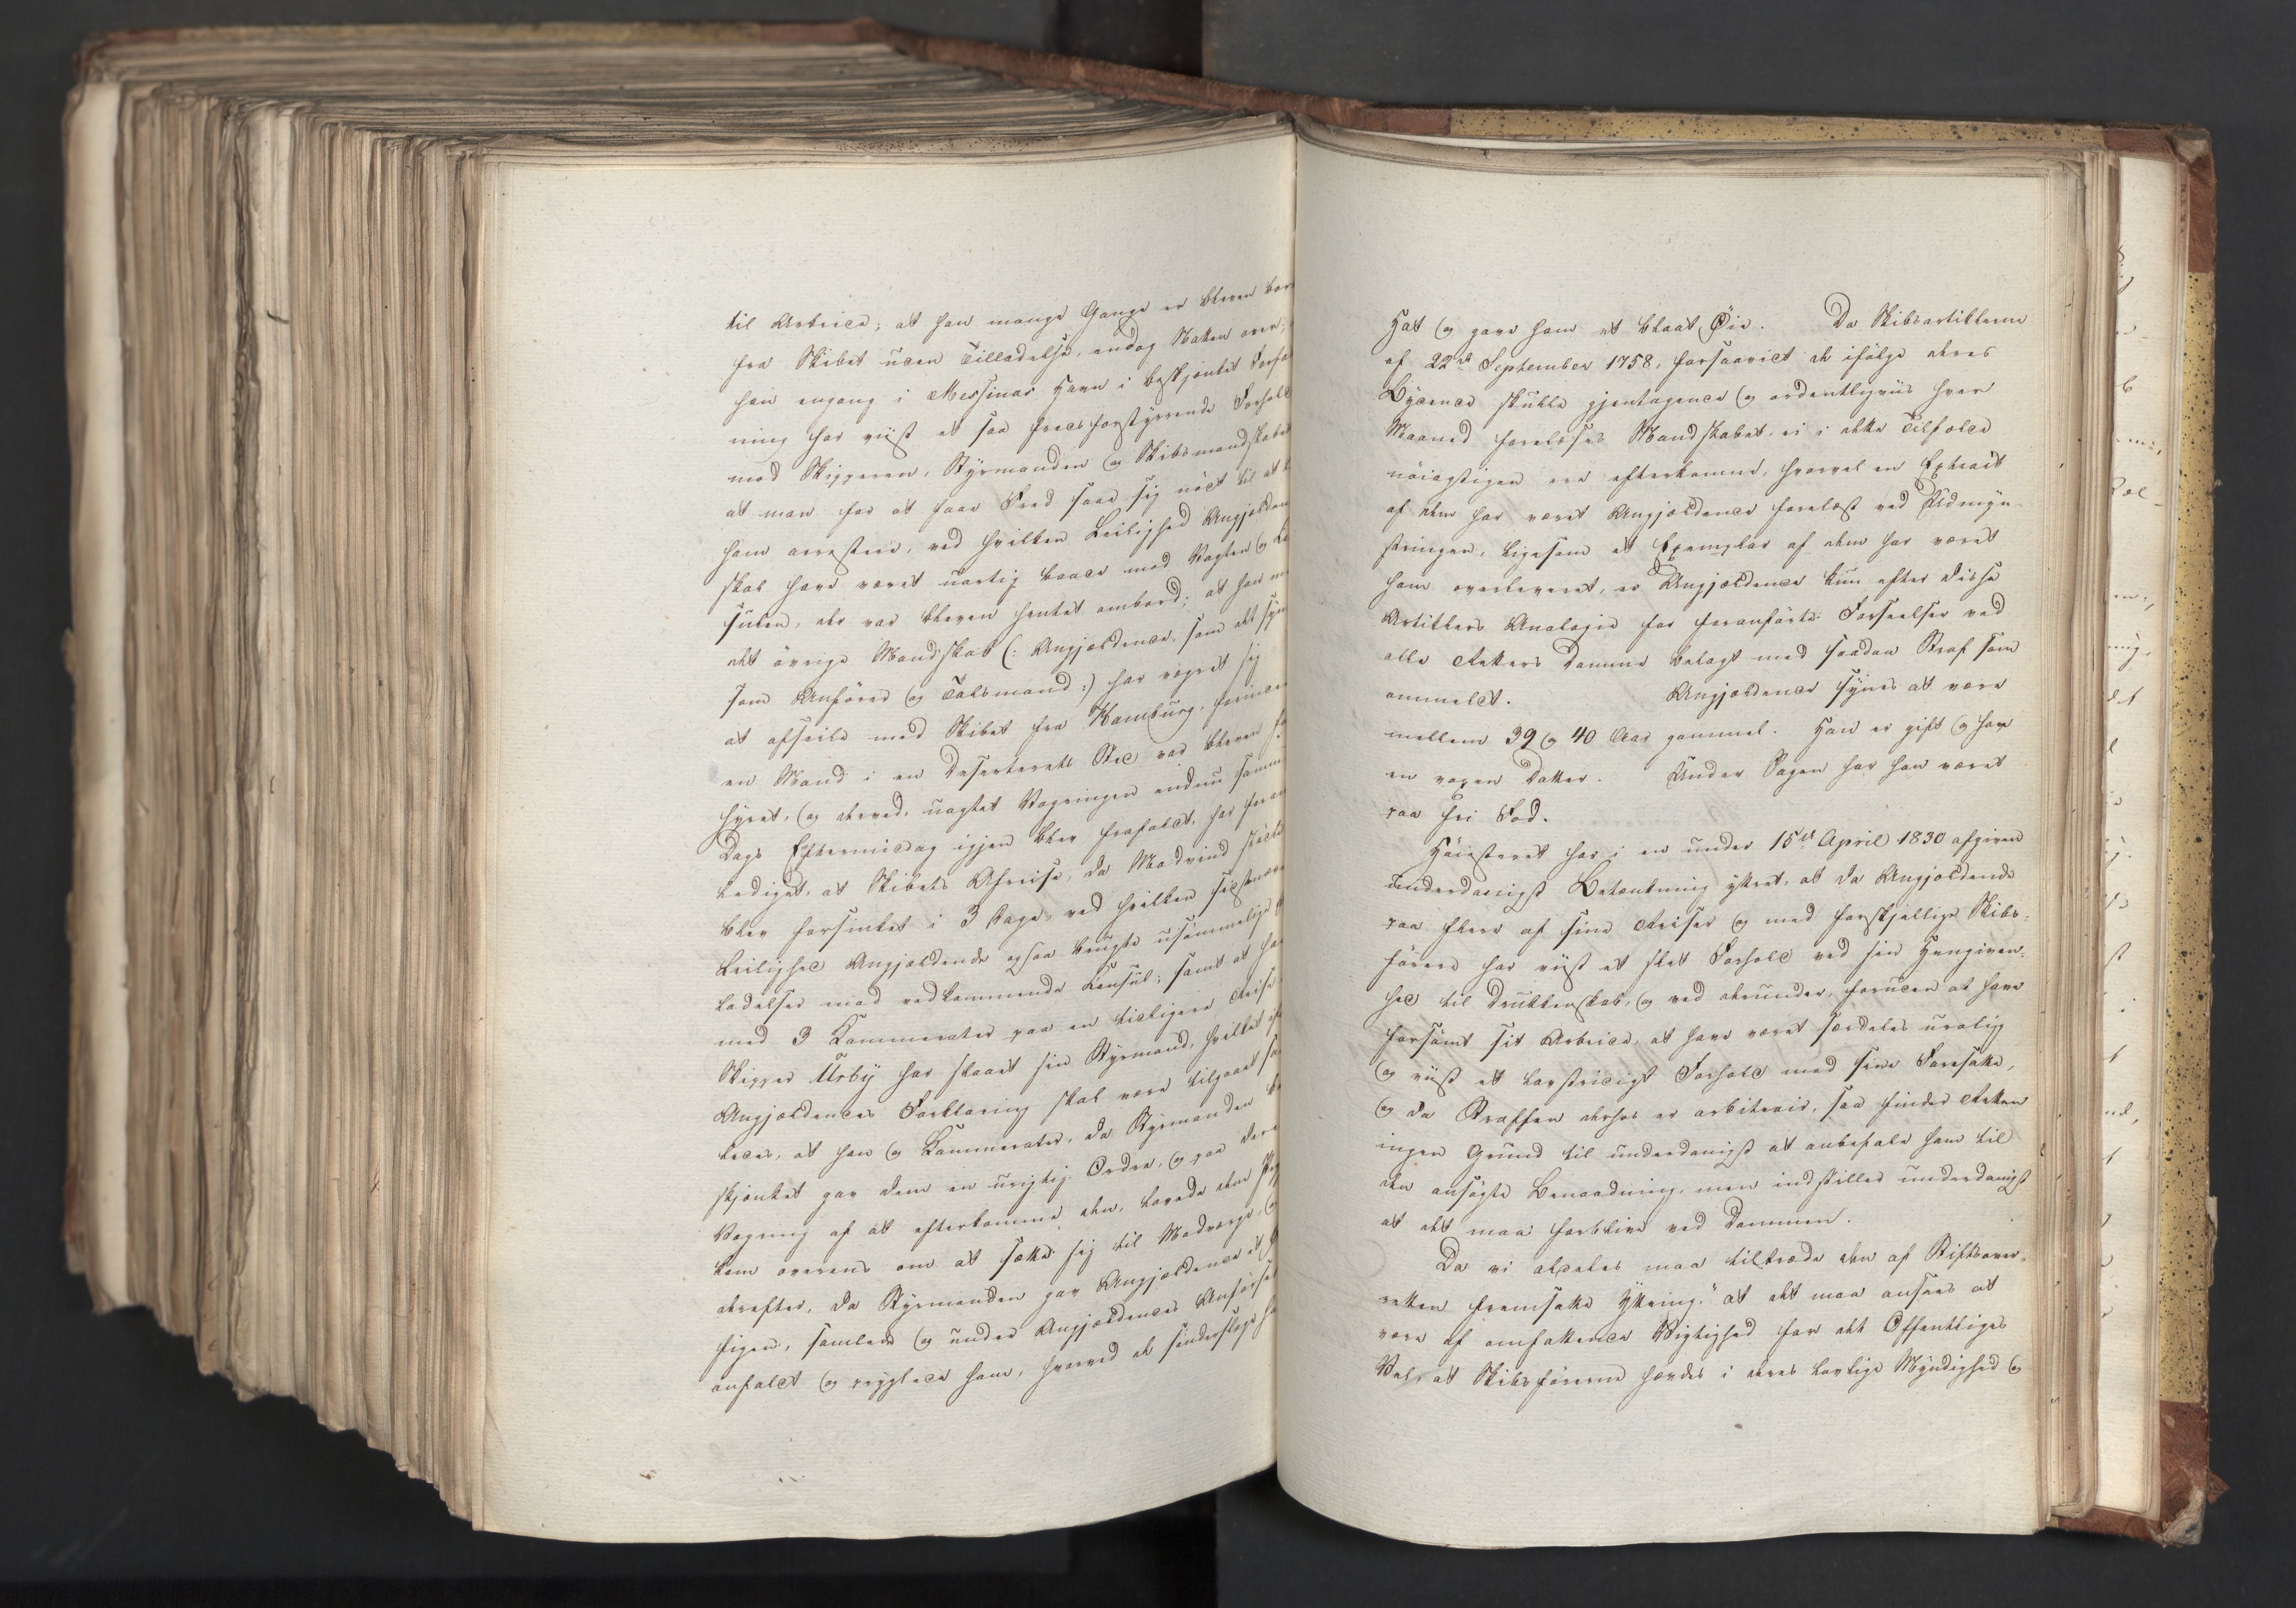 til Arbeide; at han mange Gange er bleven bor
fra Skibet uden Tilladelse, endog Natten over;
han engang i Messinas Havn i beskjænket Forfat
ning har viist et saa fredsforstyrrende Forhold
mod Skipperen, Styrmanden og Skibsmandskabet
at man for at faae Fred saae sig nødt til at
ham arrestere, ved hvilken Leilighed Angjælden
skal have været uartig baade mod Vagten og
sulen, der var bleven hentet ombord; at han
det øvrige Mandskab (: Angjældende, som det syn
som Anfører og Talsmand :) har vægret sig
at afseile med Skibet fra Hamburg, forinden
en Mand i en Deserteurs Sted var bleven
hyret, og derved, uagtet Vægringen endnu samme
Dags Eftermiddag igjen blev frafaldt, har foran
lediget, at Skibets Afreise, da Modvind
blev forsinket i 3 Dage, ved hvilken
Leilighed Angjældende ogsaa brugte usømmelige
ladelser mod vedkommende Konsul; samt at han
med 3 Kammerater paa en tidligere Reise
Skipper Ursby har slaaet sin Styrmand, hvilket
Angjældendes Forklaring skal være tilgaaet
ledes, at han og Kammerater, da Styrmanden
skjænket gav dem en urigtig Ordre, og paa deres
Vægring af at efterkomme den, lovede dem
kom overens om at sætte sig til Modværge,
derefter, da Styrmanden gav Angjældende et
figen, samlede og under Angjældendes Anførsel
anfaldt og pryglede ham, hvorved de sønderslog
Hat og gave ham et blaat Øie. Da Skibsartiklerne
af 22de September 1758, forsaavidt de ifølge deres
Bydende skulle gjentagende og ordentligviis hver
Maaned forelæses Mandskabet, ei i dette Tilfælde
nøiagtigen ere efterkomne, hvorvel en Extract
af dem har været Angjældende forelæst ved Udmyn-
stringen, ligesom et Exemplar af dem har været
ham overleveret, er Angjældende kun efter disse
Artiklers Analogie for foranførte Forseelser ved
alle Retters Domme belagt med saadan Straf som
ommeldt. Angjældende synes at være
mellem 39 og 40 Aar gammel. Han er gift og har
en voxen Datter. Under Sagen har han været
paa fri Fod.
Høiesteret har i en under 15de April 1830 afgiven
underdanigst Betænkning yttret, at da Angjældende
paa flere af sine Reiser og med forskjellige Skibs-
førere har viist et slet Forhold ved sin Hengiven-
hed til Drukkenskab, og ved derunder, foruden at have
forsømt sit Arbeide, at have været særdeles urolig
og viist et lovstridigt Forhold mod sine Foresatte,
og da Straffen derhos er arbitrair, saa finder Retten
ingen Grund til underdanigst at anbefale ham til
den ansøgte Benaadning, men indstiller underdanigst
at det maa forblive ved Dommen.
Da vi aldeles maa tiltræde den af Stiftsover-
retten fremsatte Yttring, "at det maa ansees at
være af omfattende Vigtighed for det Offentliges
Vel, at Skibsførerne hævdes i deres lovlige Myndighed og